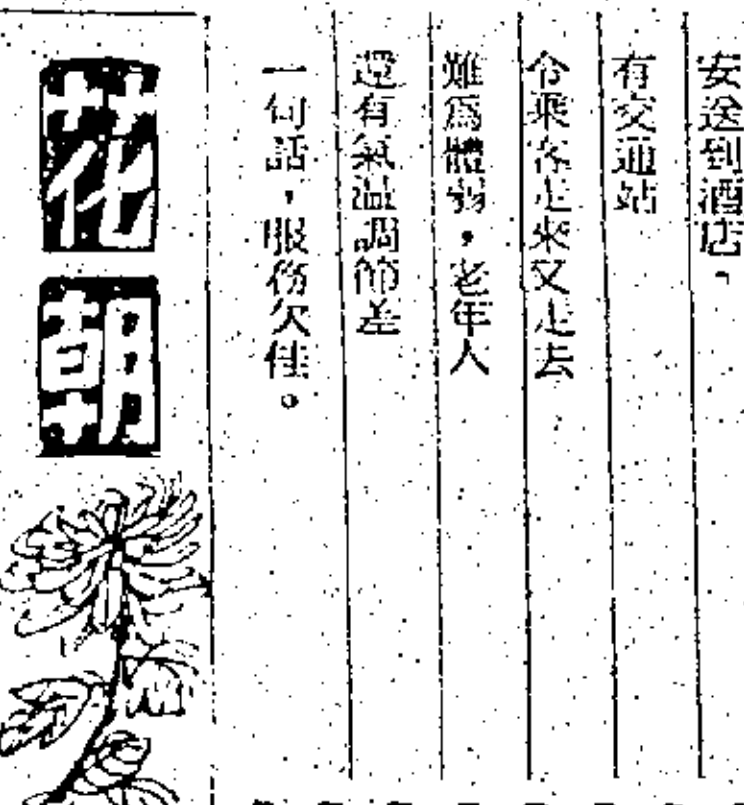 安送到酒店，
有交通站
令乘客走來又走去
難爲體弱，老年人
還有氣温調節差
一句話，服務欠佳。
花朝